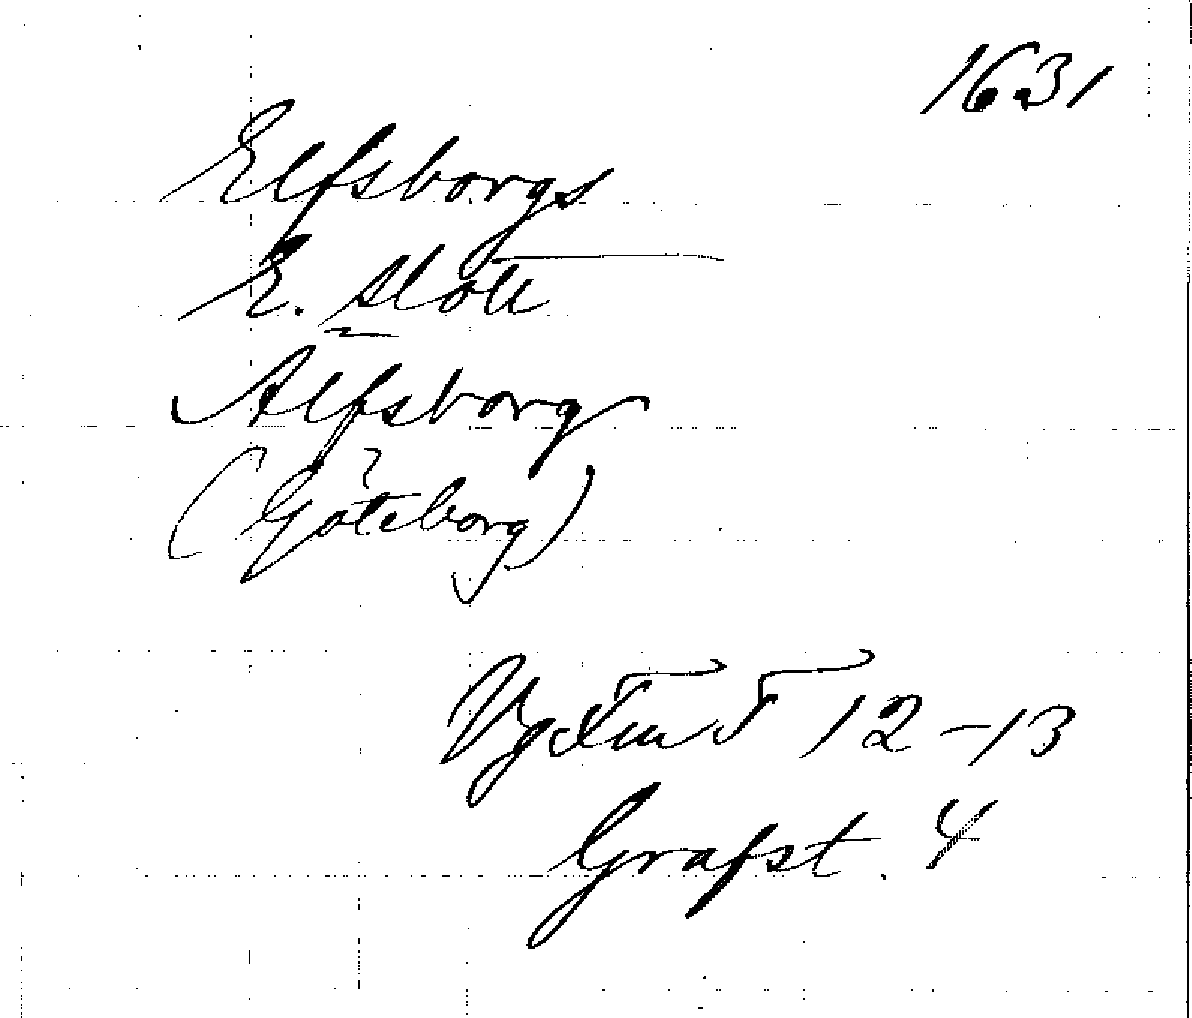 1631
Elfsborgs
E. slott
Alfsborg
(Göteborg)
Vg Fm T 12-13
Grafst. 4